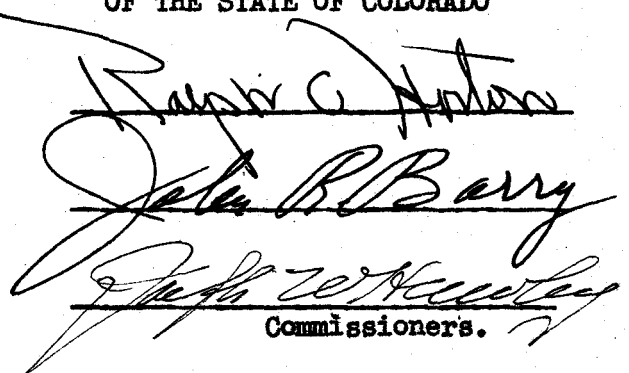 OF THE STATE OF COLORADO
Ralph C Horton
John R Barry
Joseph W Hawley
Commissioners.